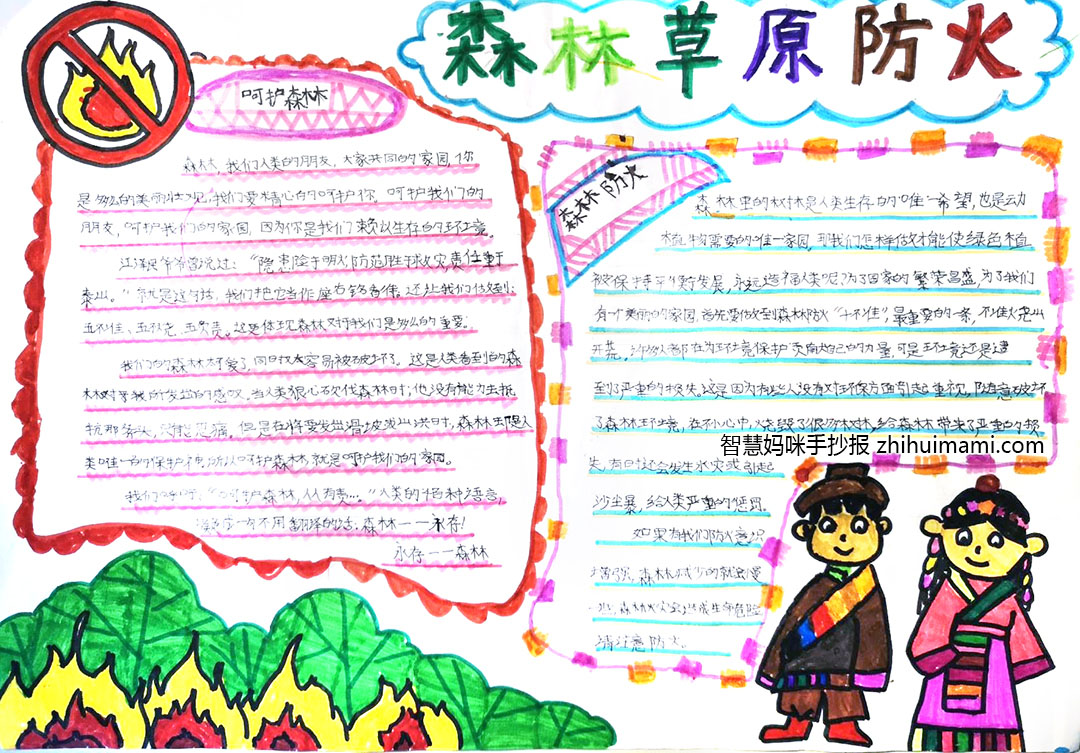 森林草原防火
呵护森林
森林，我们人类的朋友，大家共同的家园，你
是多么的美丽壮观，我们要精心的呵护你，呵护我们的
朋友，呵护我们的家园，因为你是我们赖以生存的环境。
江泽民爷爷曾说过：“隐患险于明火，防范胜于救灾，责任重于
泰山。”就是这句话，我们把它当作座右铭看待。还让我们做到：
我们的森林太可爱了，同时太容易被破坏了，这是人类看到的森
林对
抗那
类唯一的保护神，所以呵护森林就是呵护我们的家园。
我们呼吁：“呵护森林，人人有责…”人类的各种语言，
有一句不用翻译的话，森林——永存！
永存——森林
森林防火
森林里的树木是人类生存的唯一希望，也是动
植物需要的唯一家园，那我们怎样做才能使绿色植
被保持平衡发展，永远造福人类呢？为了国家的繁荣昌盛，为了我们
有一个美丽的家园，首先要做到森林防火“十不准”，最重要的一条，不准火
许多人都在为环境保护贡献自己的力量，可是环境还是遭
到了严重的损失。这是因为有些人没有对环保方面引起重视，随意破坏
了森林环境，在不小心中火烧毁了很多树林，给森林带来了严重的损
失，有时还会发生水灾或引起
沙尘暴，给人类严重的惩罚。
如果有我们防火意识
增强，森林减少的就会慢
一些，森林火灾会造成生命危险
请注意防火。
智慧妈咪手抄报 zhihuimami.com